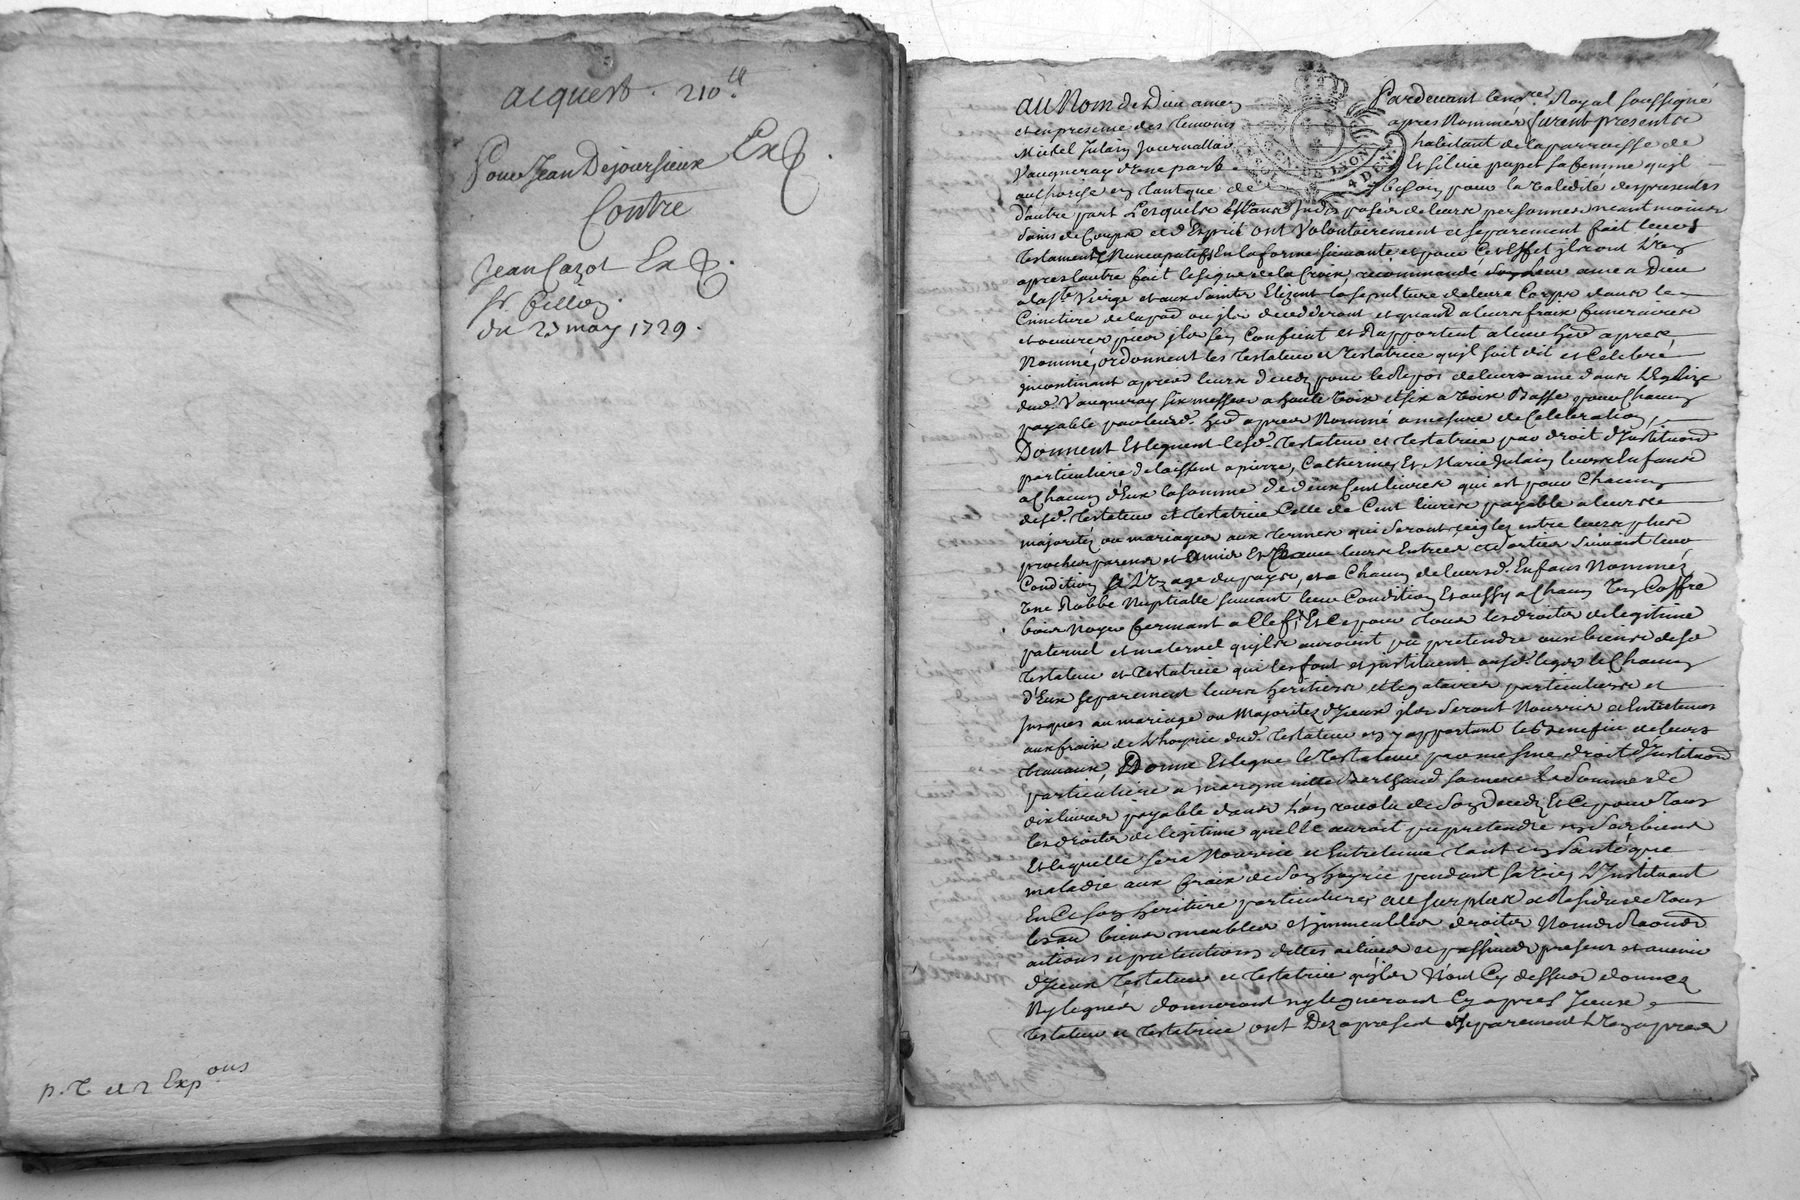 acquest. 210.tt
Pour Jean Dejoursieux Ex
Contre
Jean Cazot Ex
Sr. fillion.
du 23 may 1729.
p. C et 2 Expons
au Nom de Dieu amen Pardevant le nore. Royal soussigné
et en presence des temoins apres Nommés furent presents
Michel Julain Journallier habitant de la parroisse de
Vaugneray d'une part Et silvie papet sa femme qu'il
authorise en tant que de besoin pour la validité des presentes
GEN. DE LYON
4 DEN
d'autre part Lesquels Estant Indisposés de leurs personnes neantmoins
sains de Corps et d'Esprit ont Volontairement et separement fait leurs
testaments Nuncupatifs En la forme suivante et pour Cet Effet ils ont L'un
apres l'autre fait le signe de la Croix recommandé leur ame a Dieu
a la ste Vierge et aux saints Elizent la sepulture de leurs Corps dans le
Cimetiere de la par. ou ils decedderont et quand a leurs fraix funeraires
et oeuvres pies ils s'en Confient et Rapportent a leur her. apres
Nommé, ordonnent les testateur et testatrice qu'il soit dit et Celebré
incontinant apres leurs deceds pour le Repos de leurs ame dans L'Eglize
dud. Vaugneray six messes a haute voix et six a voix Basse pour Chacun
payable par leurd. her. apres Nommé a mesure de Celebration,
Donnent Et leguent lesd. testateur et testatrice par droit d'Institution
particuliere delaissent a pierre, Catherine, Et Marie Julain leurs Enfans
a Chacun d'Eux la somme de deux Cent livres qui est pour Chacun
desd. testateur et testatrice Celle de Cent livres payable a leurs
majorités ou mariages aux termes qui seront reiglez entre leurs plus
proches parens et amis Et leurs Entrees et sorties suivant leur
Condition et L'uzage du pays, et a Chacun de leursd. Enfans Nommés
une Robbe Nuptialle suivant leur Condition Et aussy a Chacun un Coffre
bois Noyer fermant a Clef, Et Ce pour tous les droits de legitime
paternel et maternel qu'ils auroient pu pretendre aux biens desd.
testateur et testatrice qui les font et instituent auxd. legs le Chacun
d'Eux separement leurs heritiers et legataires particuliers et
Jusques au mariage ou Majorités d'Iceux ils seront Nourris et Entretenus
aux fraix de L'hoyrie dud. testateur en y apportant le Benefice de leurs
travaux, Donne Et legue le testateur par mesme droit d'Institution
particuliere a margueritte Berthaud sa mere la somme de
dix livres payable dans L'an revolu de son deceds Et Ce pour tous
les droits de legitime quelle auroit pu pretendre en ses biens
Et laquelle sera Nourrie et Entretenue tant en santé que
maladie aux fraix de son hoyrie pendant sa vie, L'Instituant
En Ce son heritiere particuliere, au surplus et Residu de tous
les au. biens meubles et immeubles droits Noms Raisons
actions et pretentions dettes actives et passives present et avenir
d'Iceux testateur et testatrice qu'ils N'ont Cy dessus donnez
Ny legués donneront ny legueront Cy apres Iceux
testateur et testatrice ont Dez a present et separement L'un apres